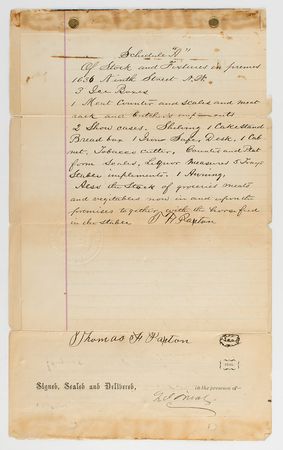 Schedule "A"
Of Stock and Fixtures in premes
1636 Ninth Street N.W.
3 Ice Boxes
1 Meat Counter and scales and meat
rack and butchers implements
2 Show cases, Shelving 1 Cake Stand
Bread box 1 Iron Safe, Desk, 1 Cab
net, Tobacco cutter, Counter and Plat
form Scales, Liquor Measures 5 Trays
Stable implements. 1 Awning,
Also the Stock of groceries meats
and vegetables now in and upon the
premises together with the horse feed
in the stable T H Paxton
Thomas H Paxton
Signed, Sealed and Delivered,
in the presence of—